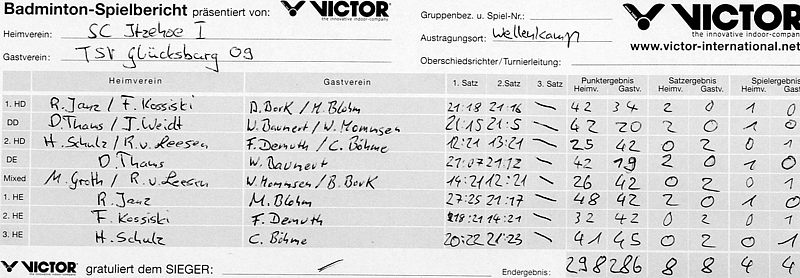 Badminton-Spielbericht präsentiert von: VICTOR the innovative indoor-company Gruppenbez. u. Spiel-Nr.: VICTOR the innovative indoor-company
Heimverein: SC Itzehoe I Austragungsort: Wellenkamp
www.victor-international.net
Gastverein: TSV Glücksburg 09 Oberschiedsrichter/Turnierleitung:
Heimverein Gastverein 1. Satz 2. Satz 3. Satz Punktergebnis Heimv. Gastv. Satzergebnis Heimv. Gastv. Spielergebnis Heimv. Gastv.
1. HD R. Janz / F. Kossiski D. Bork / M. Blohm 21:18 21:16 — 42 34 2 0 1 0
DD D. Thans / J. Weidt W. Baunert / W. Mommsen 21:15 21:5 — 42 20 2 0 1 0
2. HD H. Schulz / R. v. Leesen F. Demuth / C. Böhme 12:21 13:21 — 25 42 0 2 0 1
DE D. Thans W. Baunert 21:07 21:12 — 42 19 2 0 1 0
Mixed M. Groth / R. v. Leesen W. Mommsen / B. Bork 14:21 12:21 — 26 42 0 2 0 1
1. HE R. Janz M. Blohm 27:25 21:17 — 48 42 2 0 1 0
2. HE F. Kossiski F. Demuth 18:21 14:21 — 32 42 0 2 0 1
3. HE H. Schulz C. Böhme 20:22 21:23 — 41 45 0 2 0 1
VICTOR gratuliert dem SIEGER: — Endergebnis: 298 286 8 8 4 4